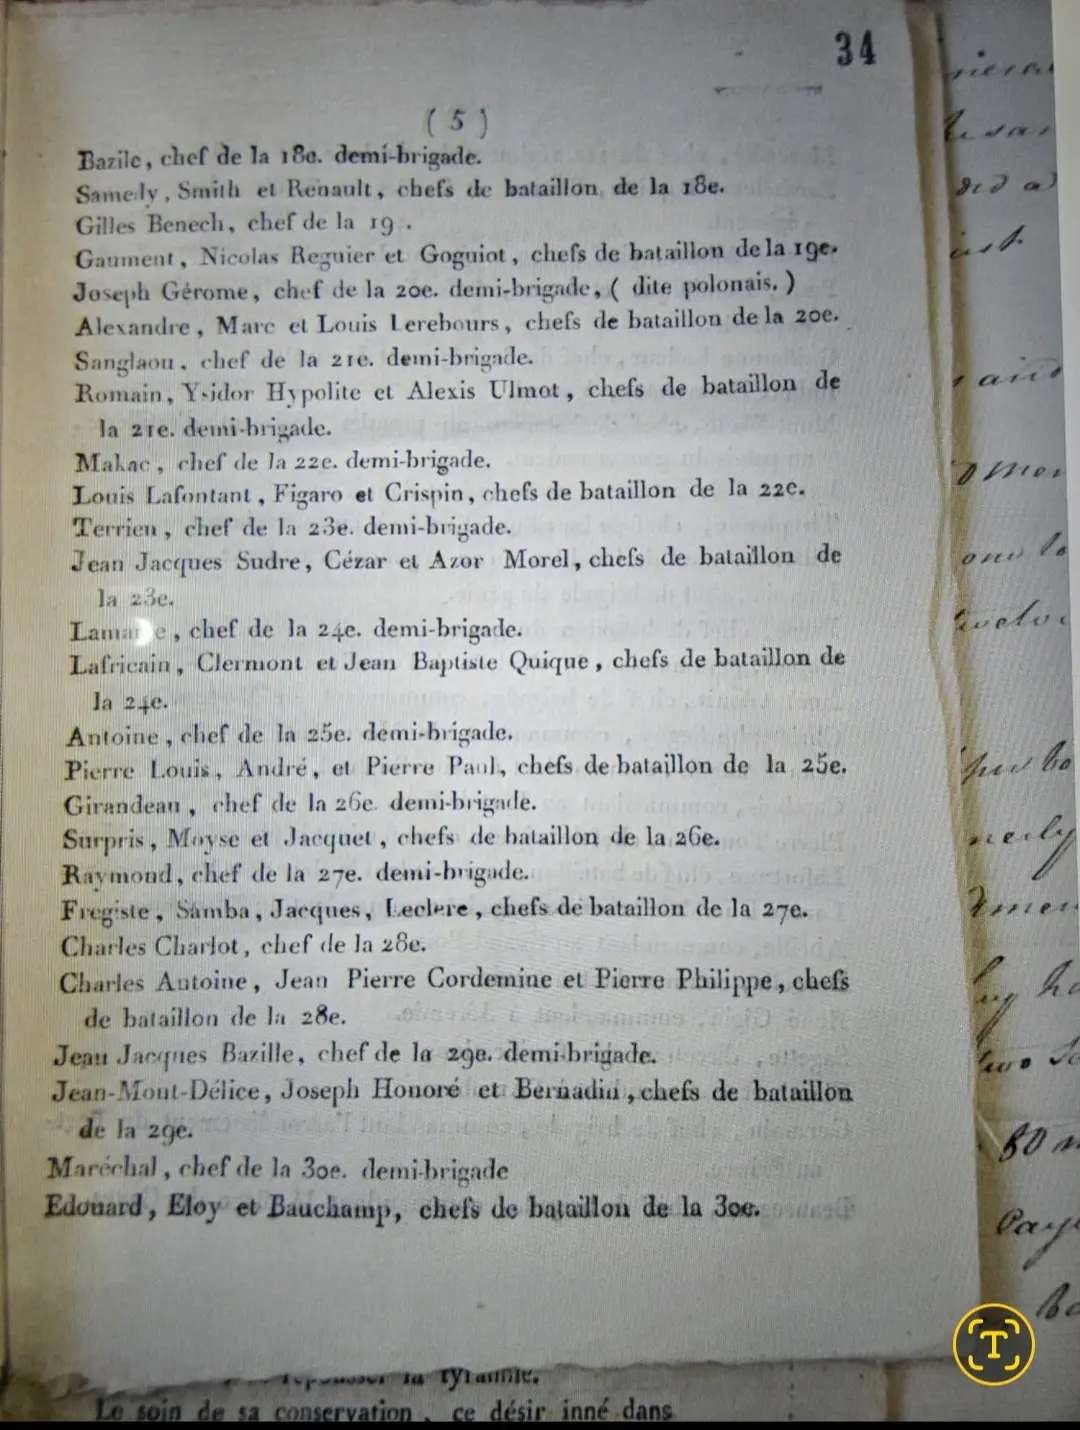 34
( 5 )
Bazile, chef de la 18e. demi-brigade.
Samedy, Smith et Renault, chefs de bataillon de la 18e.
Gilles Benech, chef de la 19 .
Gaument, Nicolas Regnier et Gogniot, chefs de bataillon de la 19e.
Joseph Gérome, chef de la 20e. demi-brigade, ( dite polonais. )
Alexandre, Marc et Louis Lerebours, chefs de bataillon de la 20e.
Sanglaou, chef de la 21e. demi-brigade.
Romain, Ysidor Hypolite et Alexis Ulmot, chefs de bataillon de
la 21e. demi-brigade.
Makac, chef de la 22e. demi-brigade.
Louis Lafontant, Figaro et Crispin, chefs de bataillon de la 22e.
Terrien, chef de la 23e. demi-brigade.
Jean Jacques Sudre, Cézar et Azor Morel, chefs de bataillon de
la 23e.
chef de la 24e. demi-brigade.
Lafricain, Clermont et Jean Baptiste Quique, chefs de bataillon de
la 24e.
Antoine, chef de la 25e. demi-brigade.
Pierre Louis, André, et Pierre Paul, chefs de bataillon de la 25e.
Girandeau, chef de la 26e. demi-brigade.
Surpris, Moyse et Jacquet, chefs de bataillon de la 26e.
Raymond, chef de la 27e. demi-brigade.
Fregiste, Samba, Jacques, Leclere, chefs de bataillon de la 27e.
Charles Charlot, chef de la 28e.
Charles Antoine, Jean Pierre Cordemine et Pierre Philippe, chefs
de bataillon de la 28e.
Jean Jacques Bazille, chef de la 29e. demi-brigade.
Jean-Mont-Délice, Joseph Honoré et Bernadin, chefs de bataillon
de la 29e.
Maréchal, chef de la 30e. demi-brigade
Edouard, Eloy et Bauchamp, chefs de bataillon de la 30e.
la tyrannie.
Le soin de sa conservation, ce désir inné dans